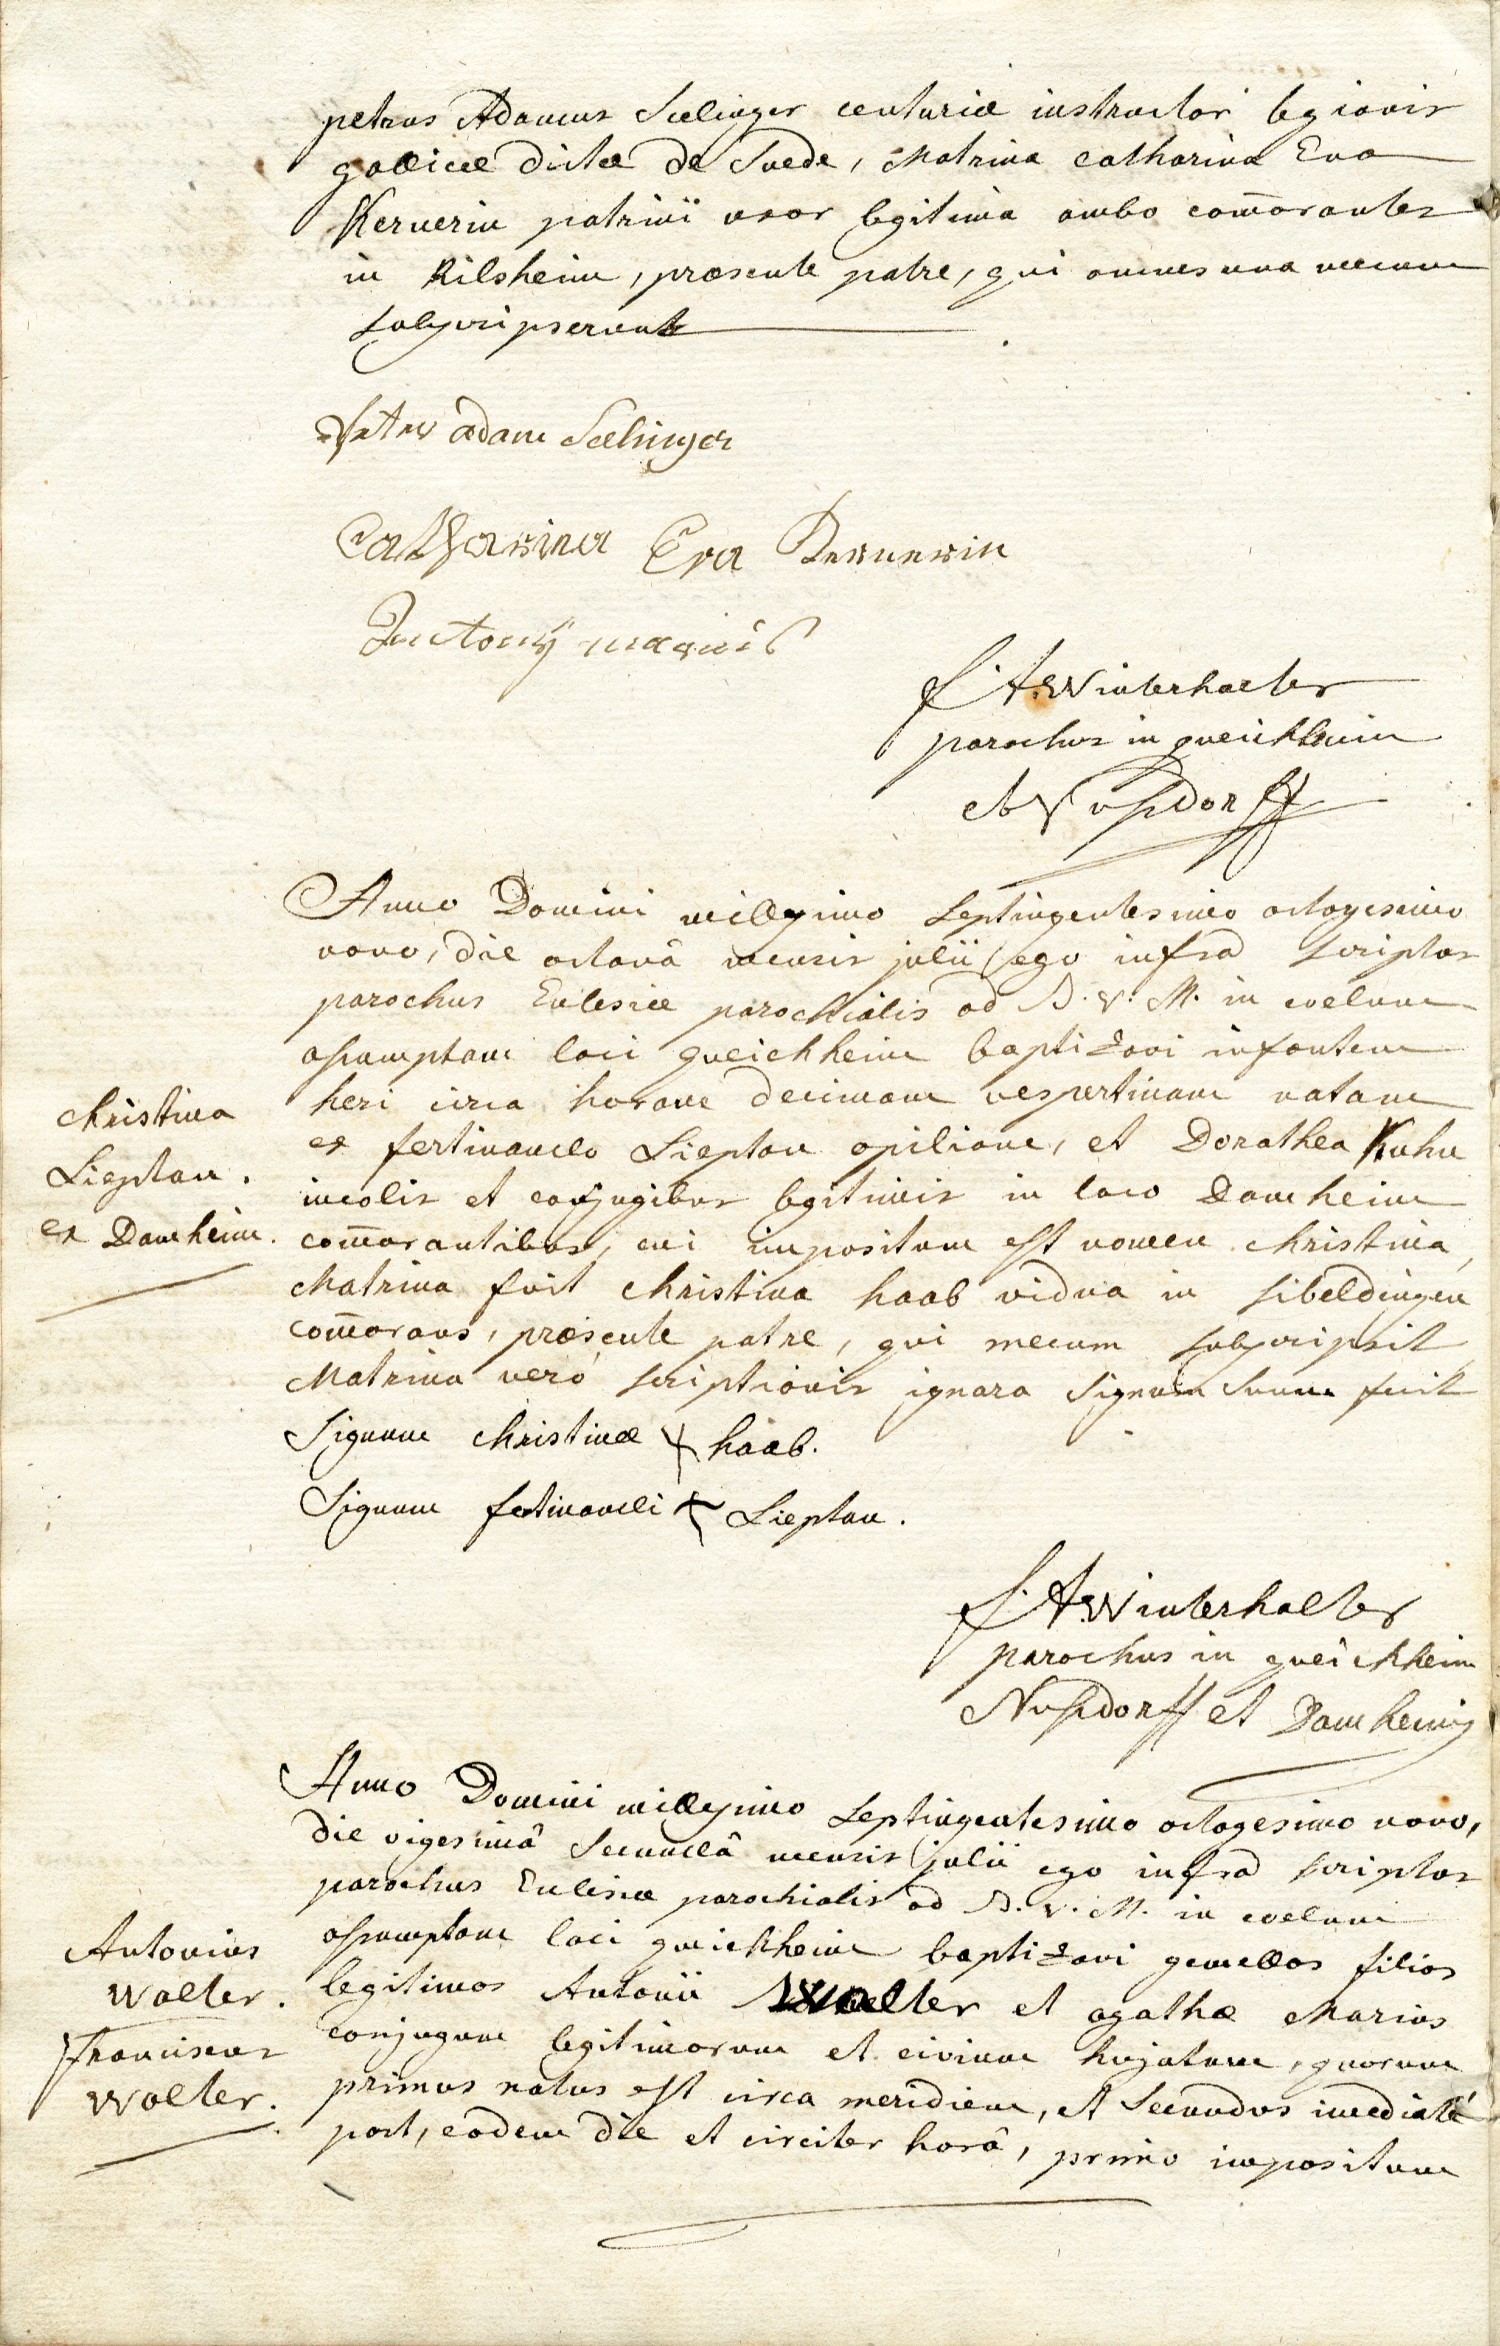 petrus Adamus Seelinger centuriæ instructor legionis
gallicæ dictæ de Suede, Matrina catharina Eva
Kernerin patrini uxor legitima ambo com̅orantes
in Rilsheim, præsente patre, qui omnes una mecum
subscripserunt
Peter adam Seelinger
Catharina Eva Kernerin
Antonÿ
f. A. Winterhalter
parochus in queichheim
et Nusdorff
Anno Domini millesimo septingentesimo octogesimo
nono, die octavâ mensis julii ego infra scriptus
parochus Eclesiæ parochialis ad B. V. M. in coelum
assumptam loci queichheim baptizavi infantem
heri circa horam decimam vespertinam natam
christina
ex fertinando Lieptau opilione, et Dorathea Kuhn
Lieptau.
incolis et conjugibus legitimis in loco Damheim
ex Damheim.
com̅orantibus, cui impositum est nomen christina,
Matrina fuit christina haab vidua in sibeldingen
com̅orans, præsente patre, qui mecum subscripsit
Matrina verò scriptionis ignara signum suum fecit
Signum christinæ + haab.
Signum fertinandi + Lieptau.
f. A. Winterhalter
parochus in queichheim
Nusdorff et Damheim
Anno Domini millesimo septingentesimo octogesimo nono,
die vigesimâ secundâ mensis julii ego infra scriptus
parochus Eclesiæ parochialis ad B. V. M. in coelum
Antonius
assumptam loci queichheim baptizavi gemellos filios
Walter.
legitimos Antonii Walter et agathæ Marius
franciscus
conjugum legitimorum et civium hujatum, quorum
Walter.
primus natus est circa meridiem, et secundus imediatè
post, eodem die et circiter horâ, primo impositum